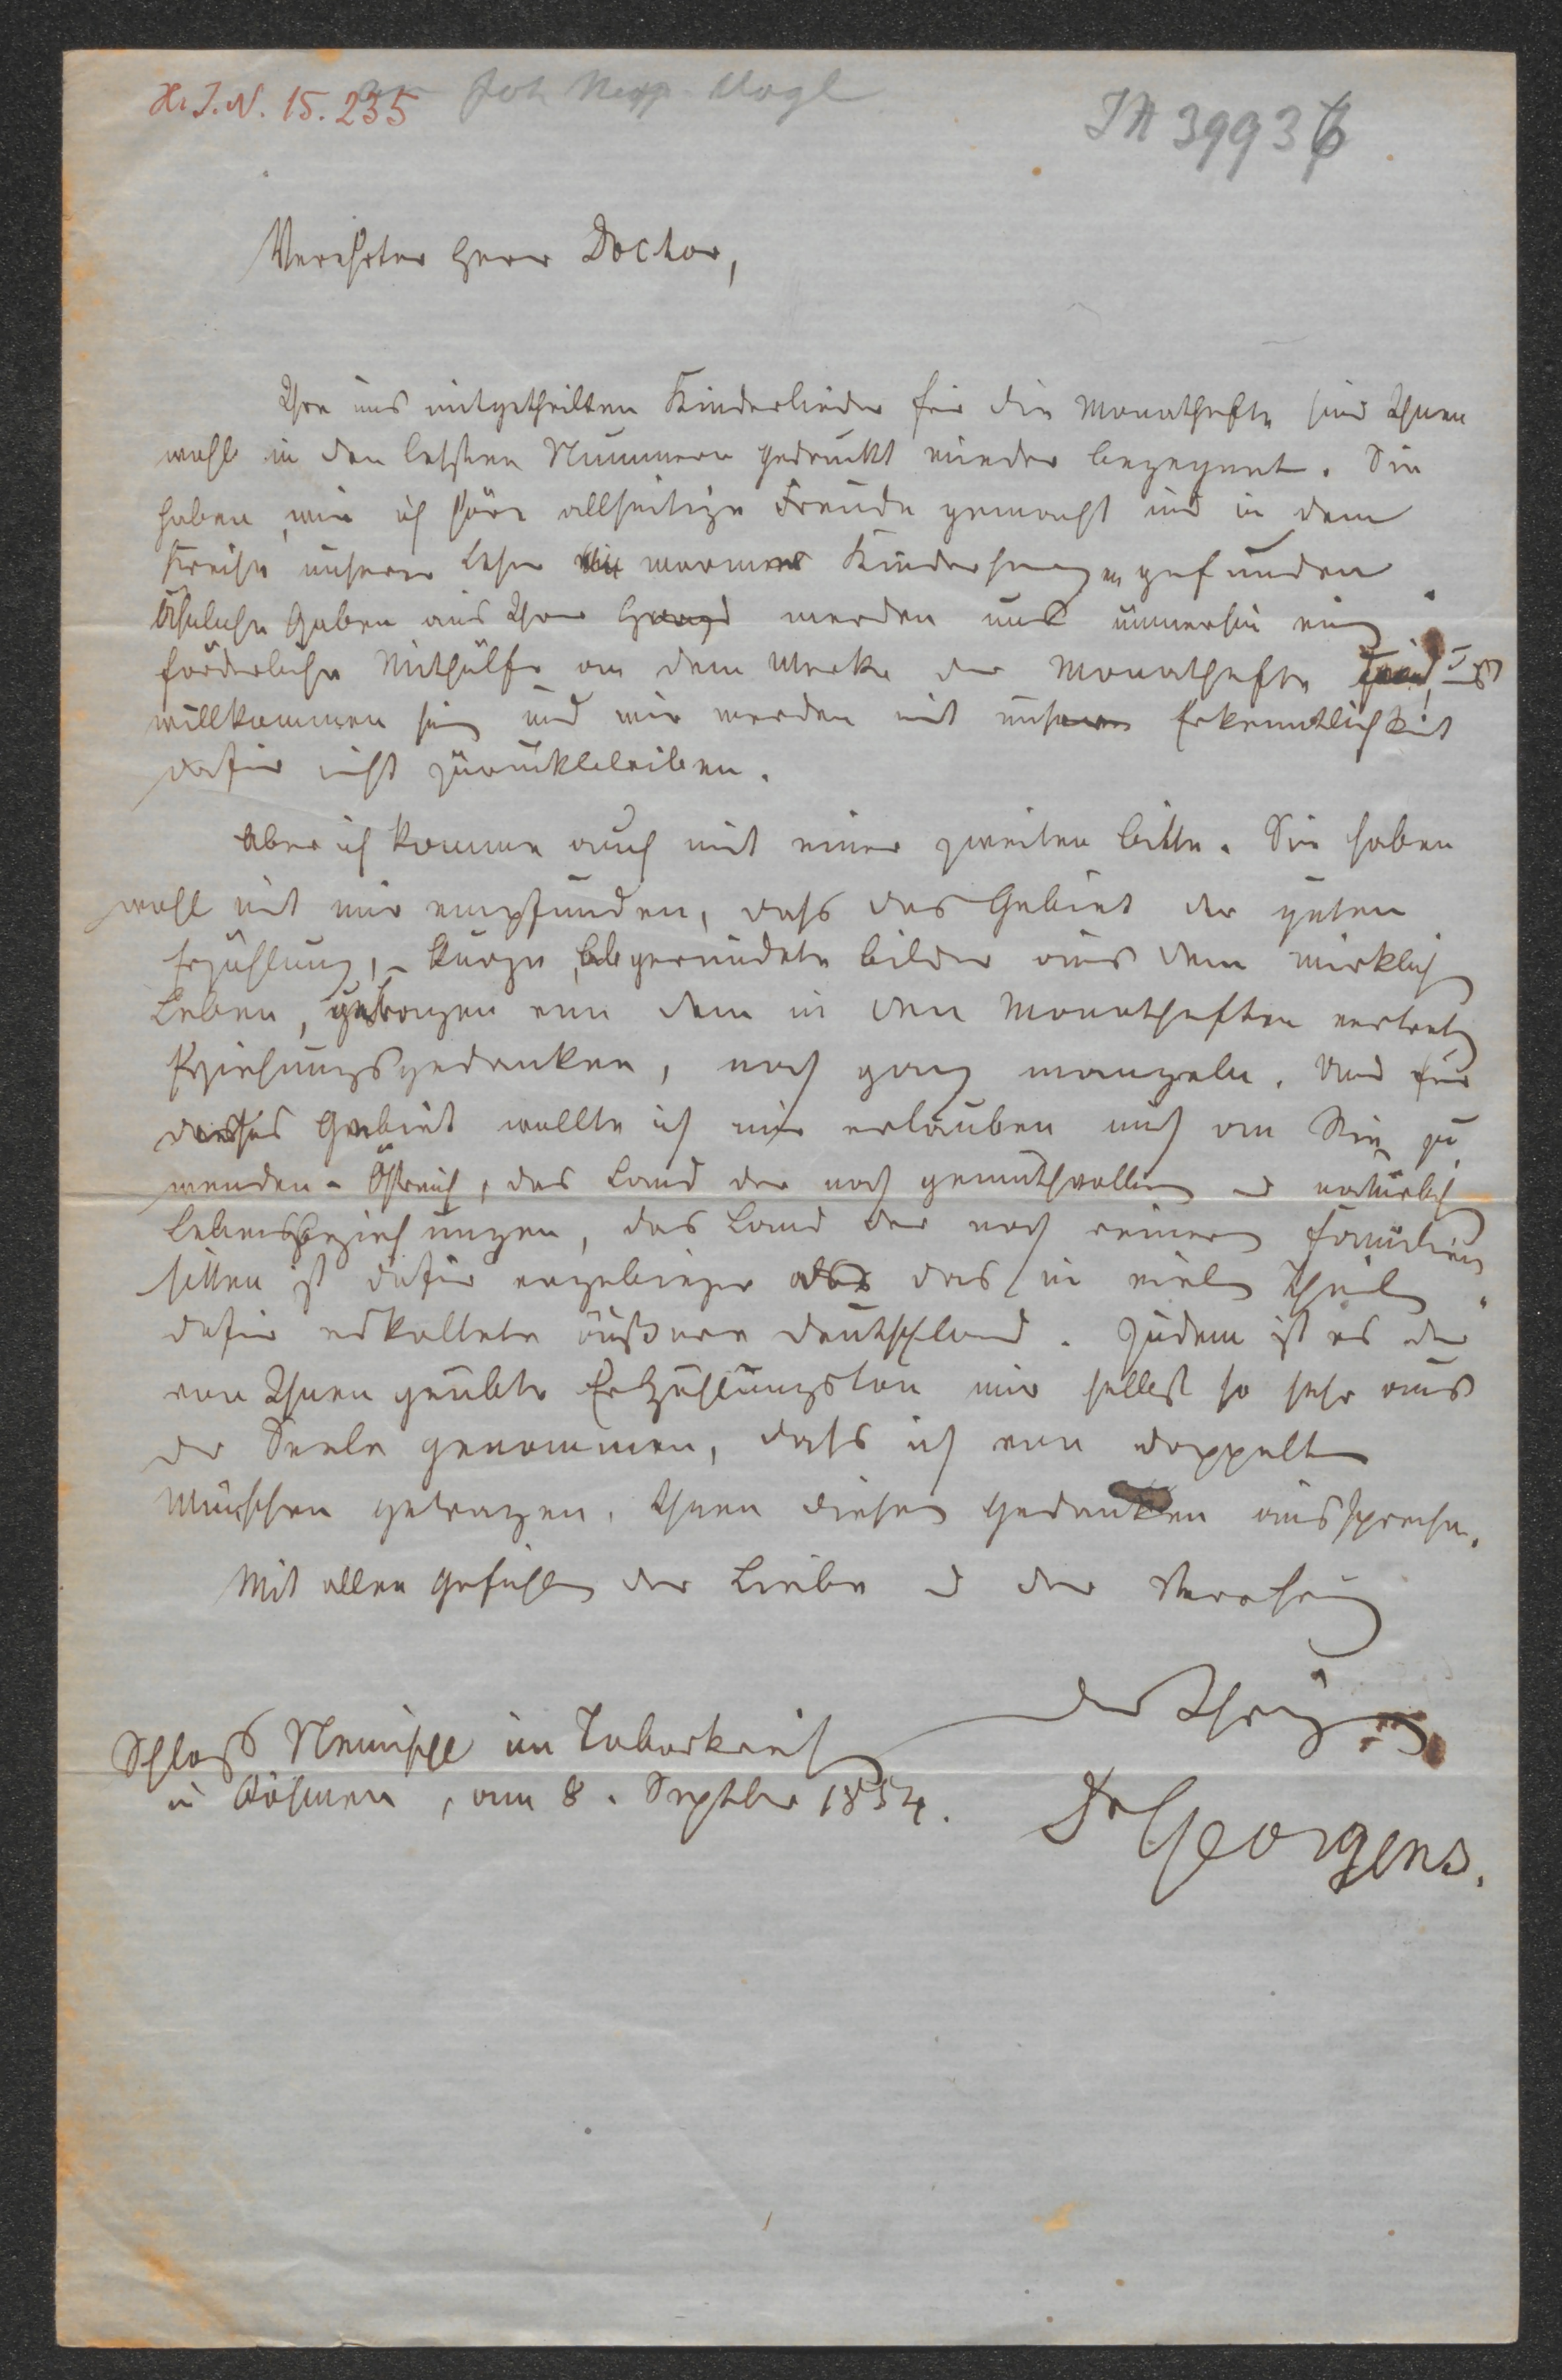 H. I. N. 15.235 Joh Nep. Vogl
IN 39936
Verehrter Herr Doctor,
Ihre uns mitgetheilten Kinderlieder für die Monathefte sind Ihnen
wohl in den letzten Nummern gedruckt wieder begegnet. Sie
haben, wie ich höre allseitige Freude gemacht und in dem
Kreise unserer Leser warme Kinderherzen gefunden.
Ähnliche Gaben aus Ihrer Hand werden uns immerhin eine
förderliche Mithülfe an dem Werke der Monathefte
willkommen sein und wir werden mit unserer Erkenntlichkeit
dafür nicht zurückbleiben.
Aber ich komme auch mit einer zweiten Bitte. Sie haben
wohl mit mir empfunden, dass das Gebiet der guten
Erzählung, – kurze, abgerundete Bilder aus dem wirklich
Leben, getragen von dem in den Monatheften vertret
Erziehungsgedanken, noch ganz mangeln. Und für
dieses Gebiet wollte ich mir erlauben mich an Sie zu
wenden – Östreich, das Land der noch gemüthvollen u natürlich
Lebensbeziehungen, das Land der noch reinen Familien
sitten ist dafür ergebiger als das in vielen Theilen
dafür erkaltete äußere Deutschland. Zudem ist es der
von Ihnen geübte Erzählungston mir selbst so sehr aus
der Seele genommen, dass ich von doppelten
Wünschen getragen, Ihnen diesen Gedanken ausspreche.
Mit allen Gefühlen der Liebe u der Verehrung
der Ihrige
Schloß Nemischl im Taborkreis
in Böhmen, am 8. Septber 1854.
Dr Georgens.